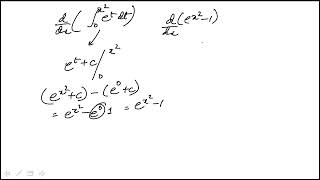 d/dx ( ∫₀^{x²} e^t dt )    d/dx (e^{x²} - 1)
e^t + c |₀^{x²}
(e^{x²} + c) - (e⁰ + c)
= e^{x²} - e⁰ 1 = e^{x²} - 1